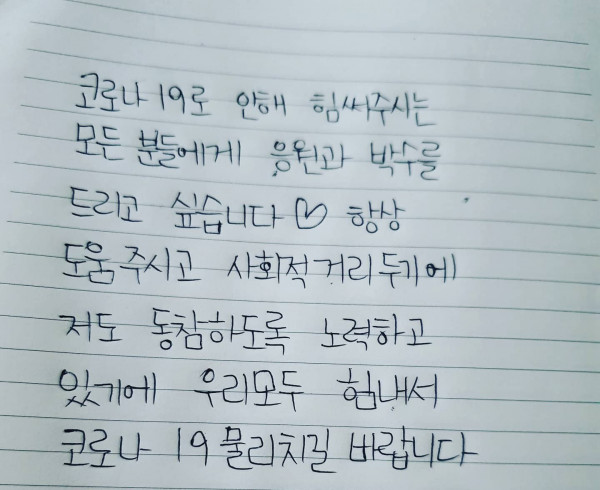 코로나19로 인해 힘써주시는
모든 분들에게 응원과 박수를
드리고 싶습니다♡ 항상
도움주시고 사회적거리두기에
저도 동참하도록 노력하고
있기에 우리모두 힘내서
코로나 19 물리치길 바랍니다